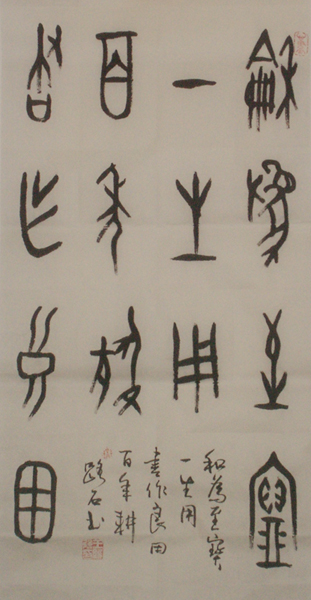 龢為至寶
一生用
百年耕
書作良田
和為至寶
一生用
書作良田
百年耕
路石书